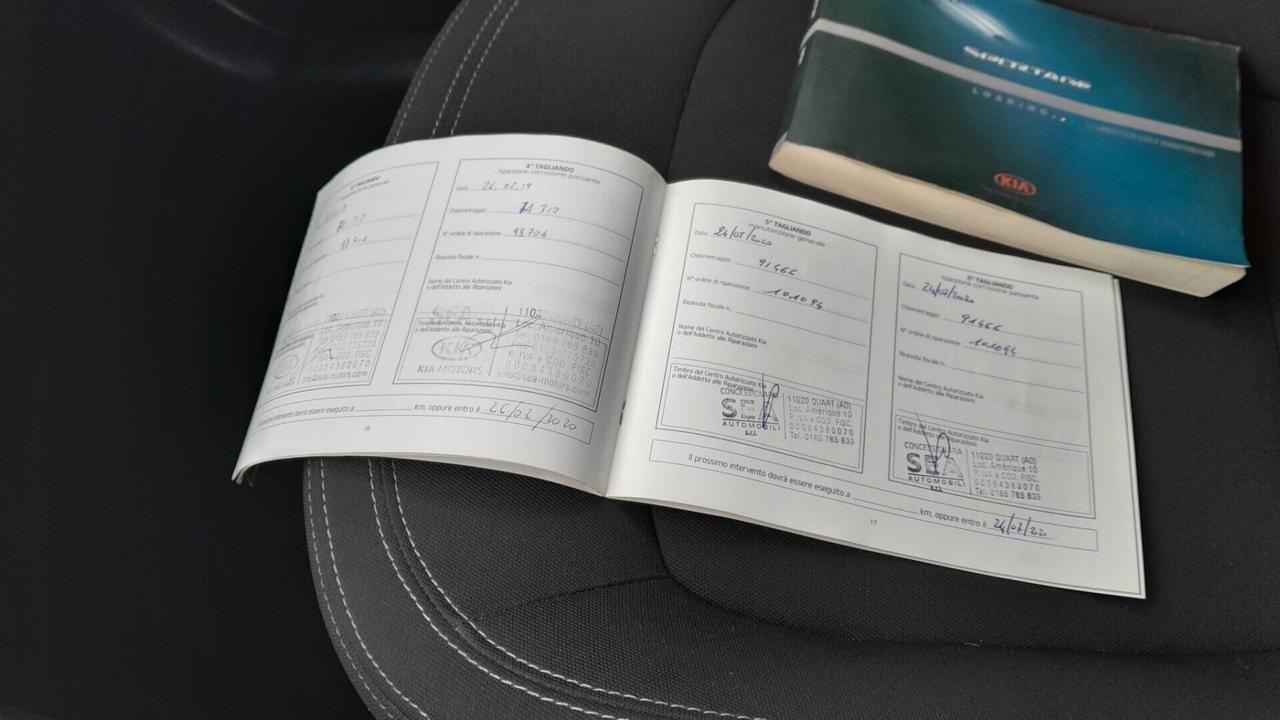 SPORTAGE
LOADING...
KIA
4° TAGLIANDO
manutenzione generale
71 312
98704
11020 QUART (AO)
COD. FISC.
00084380070
info@sea-motors.com
4° TAGLIANDO
ispezione corrosione passante
Data: 26.02.19
Chilometraggio: 71 312
N° ordine di riparazione: 98704
Ricevuta fiscale n.:
Nome del Centro Autorizzato Kia
o dell'Addetto alle Riparazioni:
Timbro del Centro Autorizzato Kia
o dell'Addetto alle Riparazioni:
SEA
KIA
KIA MOTORS
11020 QUART (AO)
Loc. Amérique 10
Tel. 0165 765 839
P. IVA e COD. FISC.
00084380070
info@sea-motors.com
intervento dovrà essere eseguito a km, oppure entro il 26/02/2020
16
5° TAGLIANDO
manutenzione generale
Data: 24/07/2020
Chilometraggio: 91566
N° ordine di riparazione: 101094
Ricevuta fiscale n.:
Nome del Centro Autorizzato Kia
o dell'Addetto alle Riparazioni:
Timbro del Centro Autorizzato Kia
o dell'Addetto alle Riparazioni:
CONCESSIONARIA
SEA
AUTOMOBILI
s.r.l.
11020 QUART (AO)
Loc. Amérique 10
P. IVA e COD. FISC.
00084380070
Tel. 0165 765 839
5° TAGLIANDO
ispezione corrosione passante
Data: 24/07/2020
Chilometraggio: 91566
N° ordine di riparazione: 101094
Ricevuta fiscale n.:
Nome del Centro Autorizzato Kia
o dell'Addetto alle Riparazioni:
Timbro del Centro Autorizzato Kia
o dell'Addetto alle Riparazioni:
CONCESSIONARIA
SEA
AUTOMOBILI
s.r.l.
11020 QUART (AO)
Loc. Amérique 10
P. IVA e COD. FISC.
00084380070
Tel. 0165 765 839
Il prossimo intervento dovrà essere eseguito a km, oppure entro il 24/07/22
17